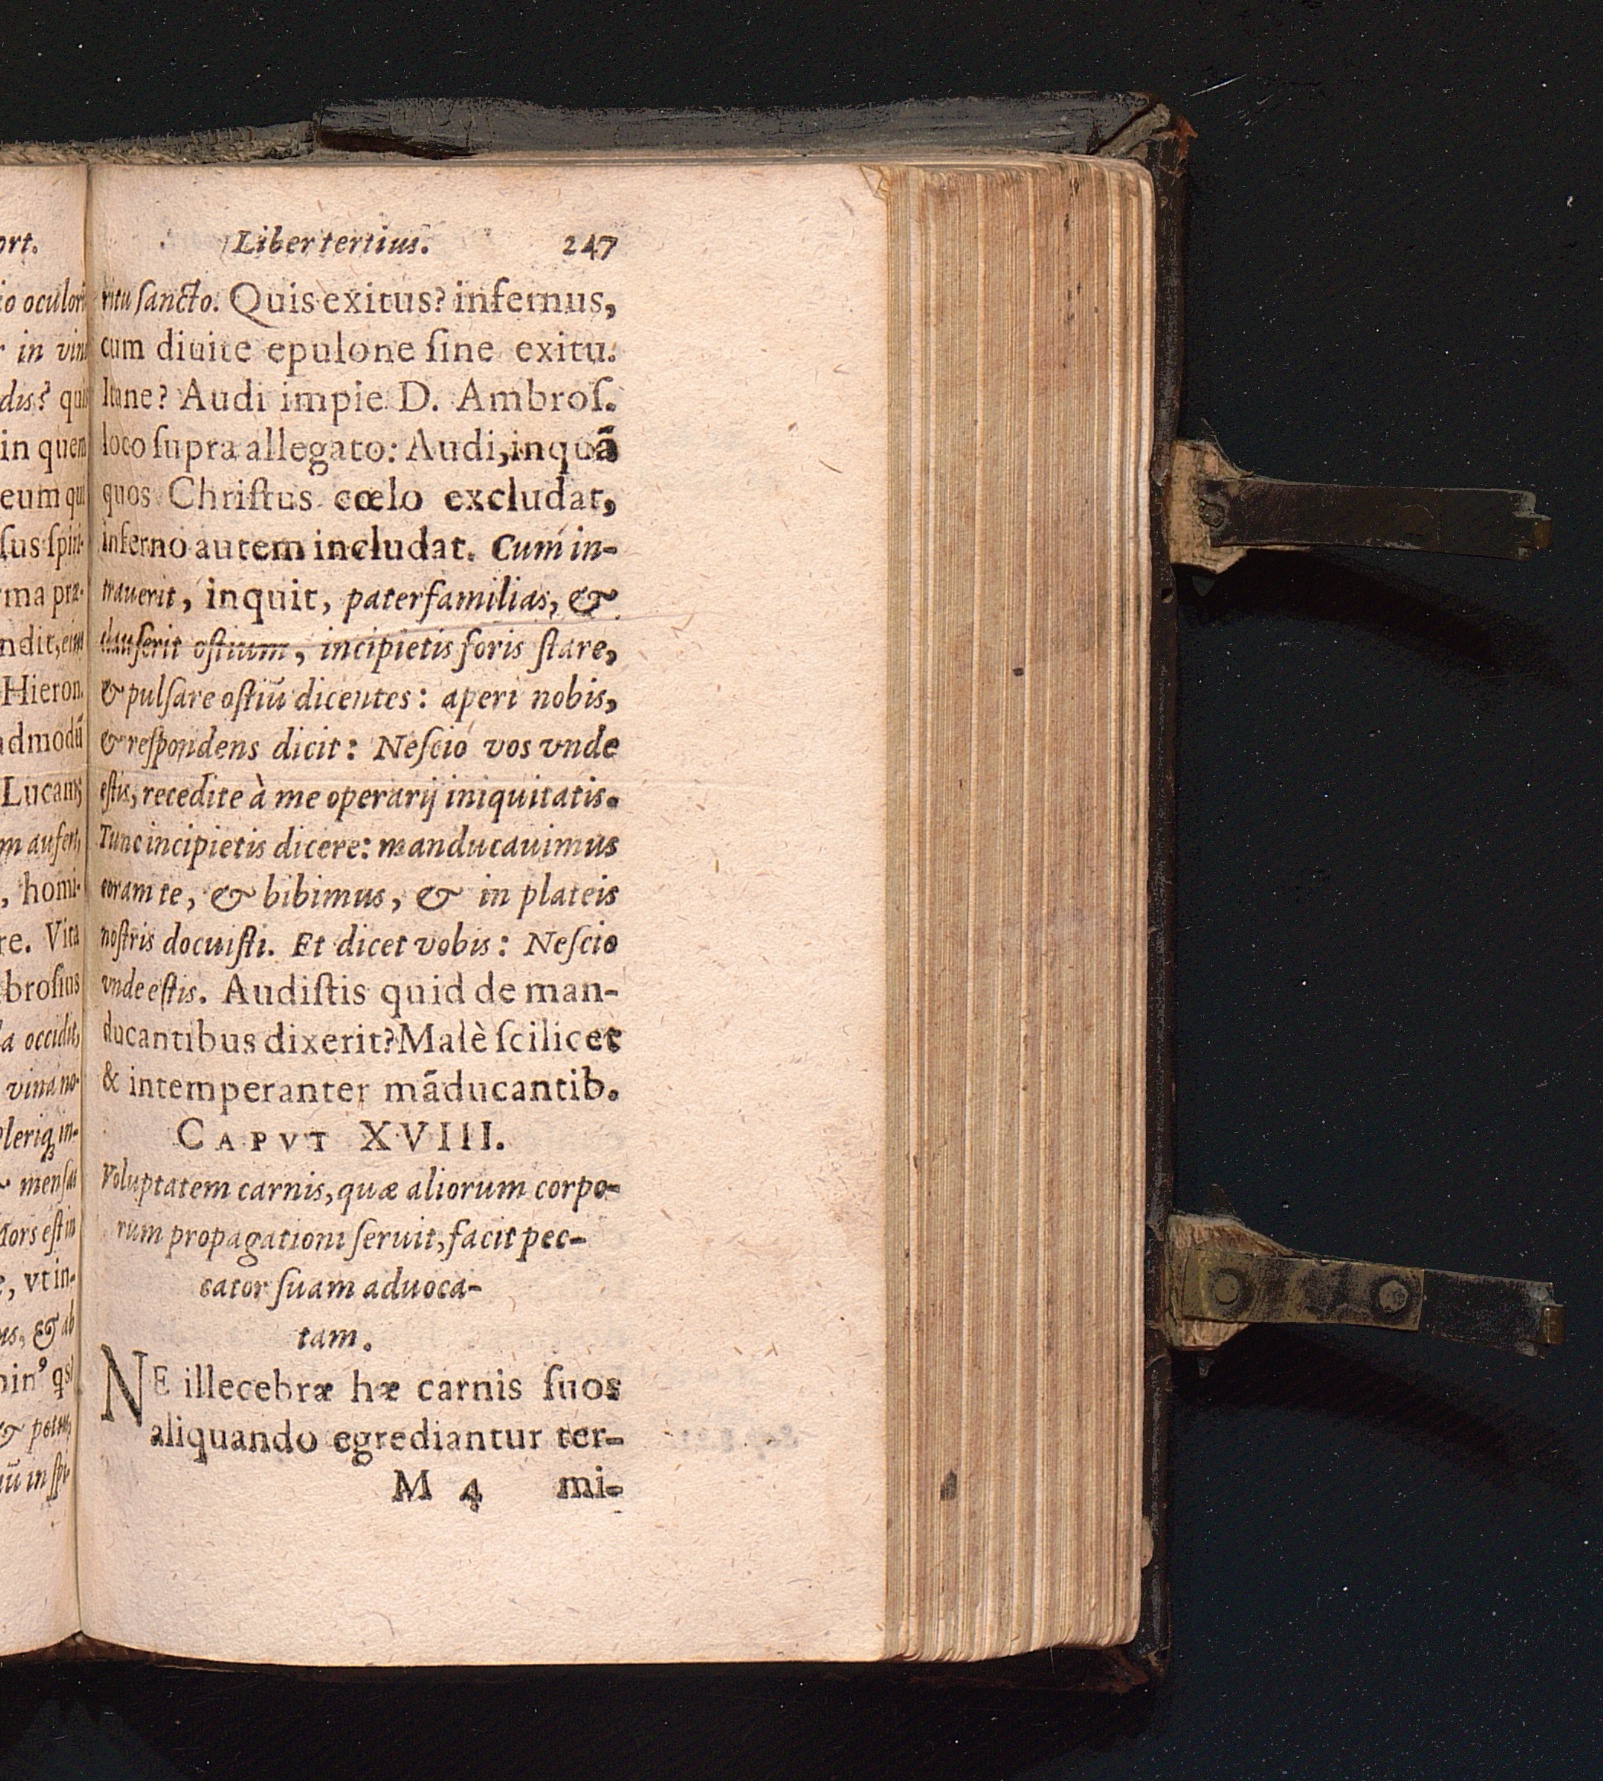 ort.
io oculorū
r in vin
dis? quis
in quem
eum qui
sus spiri-
rma præ-
ndit, eius
Hieron.
admodū
Lucanus
m aufert,
, homi-
re. Vita
brosius
a occidit,
vina no-
pleriq; in-
mensas
Mors est in
e, vt in-
us, & ab
& potus,
in spi-
Liber tertius. 247
ritu ſancto. Quis exitus? infernus,
cum diuite epulone ſine exitu.
Itane? Audi impie D. Ambroſ.
loco ſupra allegato: Audi, inquā
quos Chriſtus cœlo excludat,
inferno autem includat. Cum in-
trauerit, inquit, paterfamilias, &
clauſerit oſtium, incipietis foris ſtare,
& pulſare oſtiū dicentes: aperi nobis,
& reſpondens dicit: Neſcio vos vnde
eſtis, recedite à me operarij iniquitatis.
Tunc incipietis dicere: manducauimus
coram te, & bibimus, & in plateis
noſtris docuiſti. Et dicet vobis: Neſcio
vnde eſtis. Audiſtis quid de man-
ducantibus dixerit? Malè ſcilicet
& intemperanter māducantib.
CAPVT XVIII.
Voluptatem carnis, quæ aliorum corpo-
rum propagationi ſeruit, facit pec-
cator ſuam aduoca-
tam.
NE illecebræ hæ carnis ſuos
aliquando egrediantur ter-
M 4 mi-